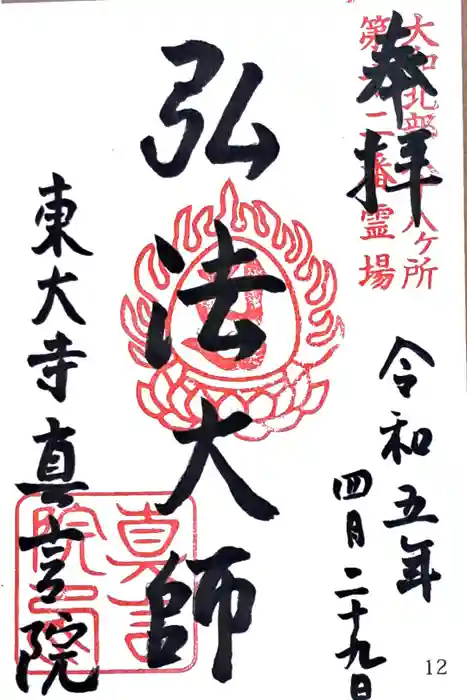 奉拝
大和北部八十八ヶ所
第十二番霊場
令和五年
四月二十九日
弘法大師
東大寺真言院
真言院印
12